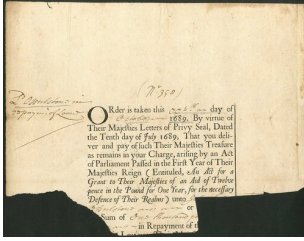 (No 350)
ORder is taken this day of
October 1689. By virtue of
Their Majesties Letters of Privy Seal, Dated
the Tenth day of July 1689, That you deli-
ver and pay of such Their Majesties Treasure
as remains in your Charge, arising by an Act
of Parliament Passed in the First Year of Their
Majesties Reign (Entituled, An Act for a
Grant to Their Majesties of an Aid of Twelve
pence in the Pound for One Year, for the necessary
Defence of Their Realms) unto
or
Sum of One thousand
in Repayment of